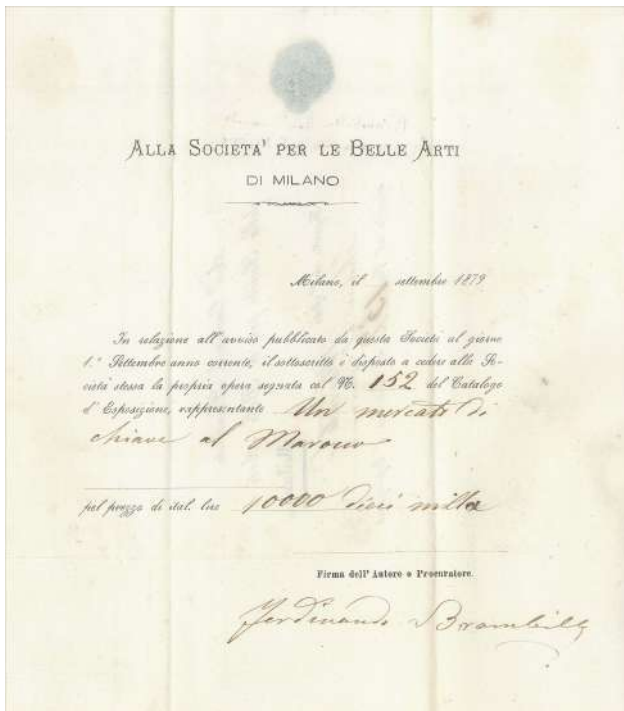 ALLA SOCIETA' PER LE BELLE ARTI
DI MILANO
Milano, il settembre 1879
In relazione all'avviso pubblicato da questa Società al giorno
1.° Settembre anno corrente, il sottoscritto è disposto a cedere alla So-
cietà stessa la propria opera segnata col N. 152 del Catalogo
d'Esposizione, rappresentante Un mercato di
chiave al Marocco
pel prezzo di ital. lire 10000 dieci milla
Firma dell'Autore o Procuratore.
Ferdinando Brambilla